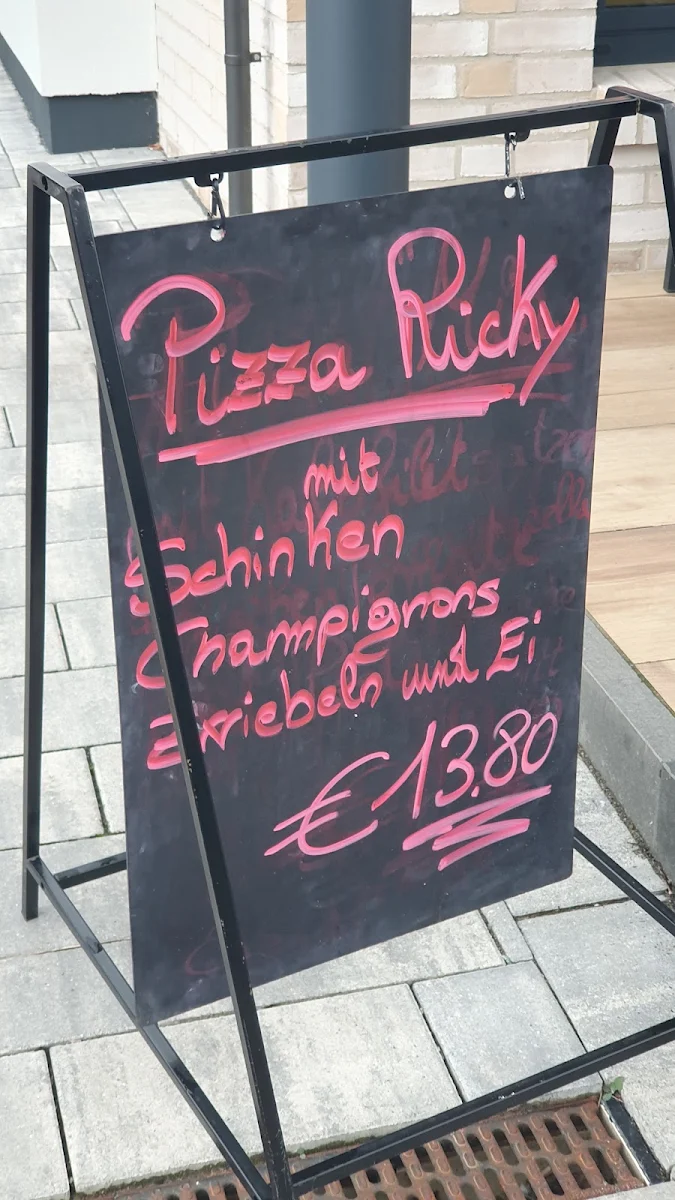 Pizza Ricky
mit
Schinken
Champignons
Zwiebeln und Ei
€ 13.80